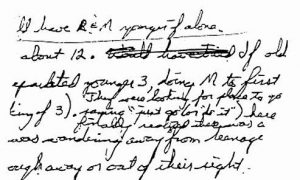 ll have R & M younger if alone.
about 12. If old
eparated younger 3, doing M to first
They were looking for place to go
ing of 3). saying "just go on, do it") here
finally realized there was a
was wandering away from teenage
ough away or out of their sight.